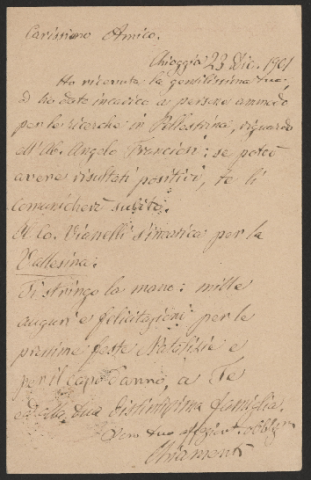 Carissimo Amico.
Chioggia 23 Dic. 1901
Ho ricevuta la gentilissima tua,
e ho dato incarico a persone
per le ricerche in Pellestrina, riguardo
all'Ab. Angelo : se potrò
avere risultati positivi, te li
comunicherò subito.
Al Co. Vianelli per la
Vallesina.
Ti stringo la mano: mille
auguri e felicitazioni per le
prossime feste Natalizie e
per il capo d'anno, a Te
ed alla tua distintissima famiglia.
tuo
Chiamenti